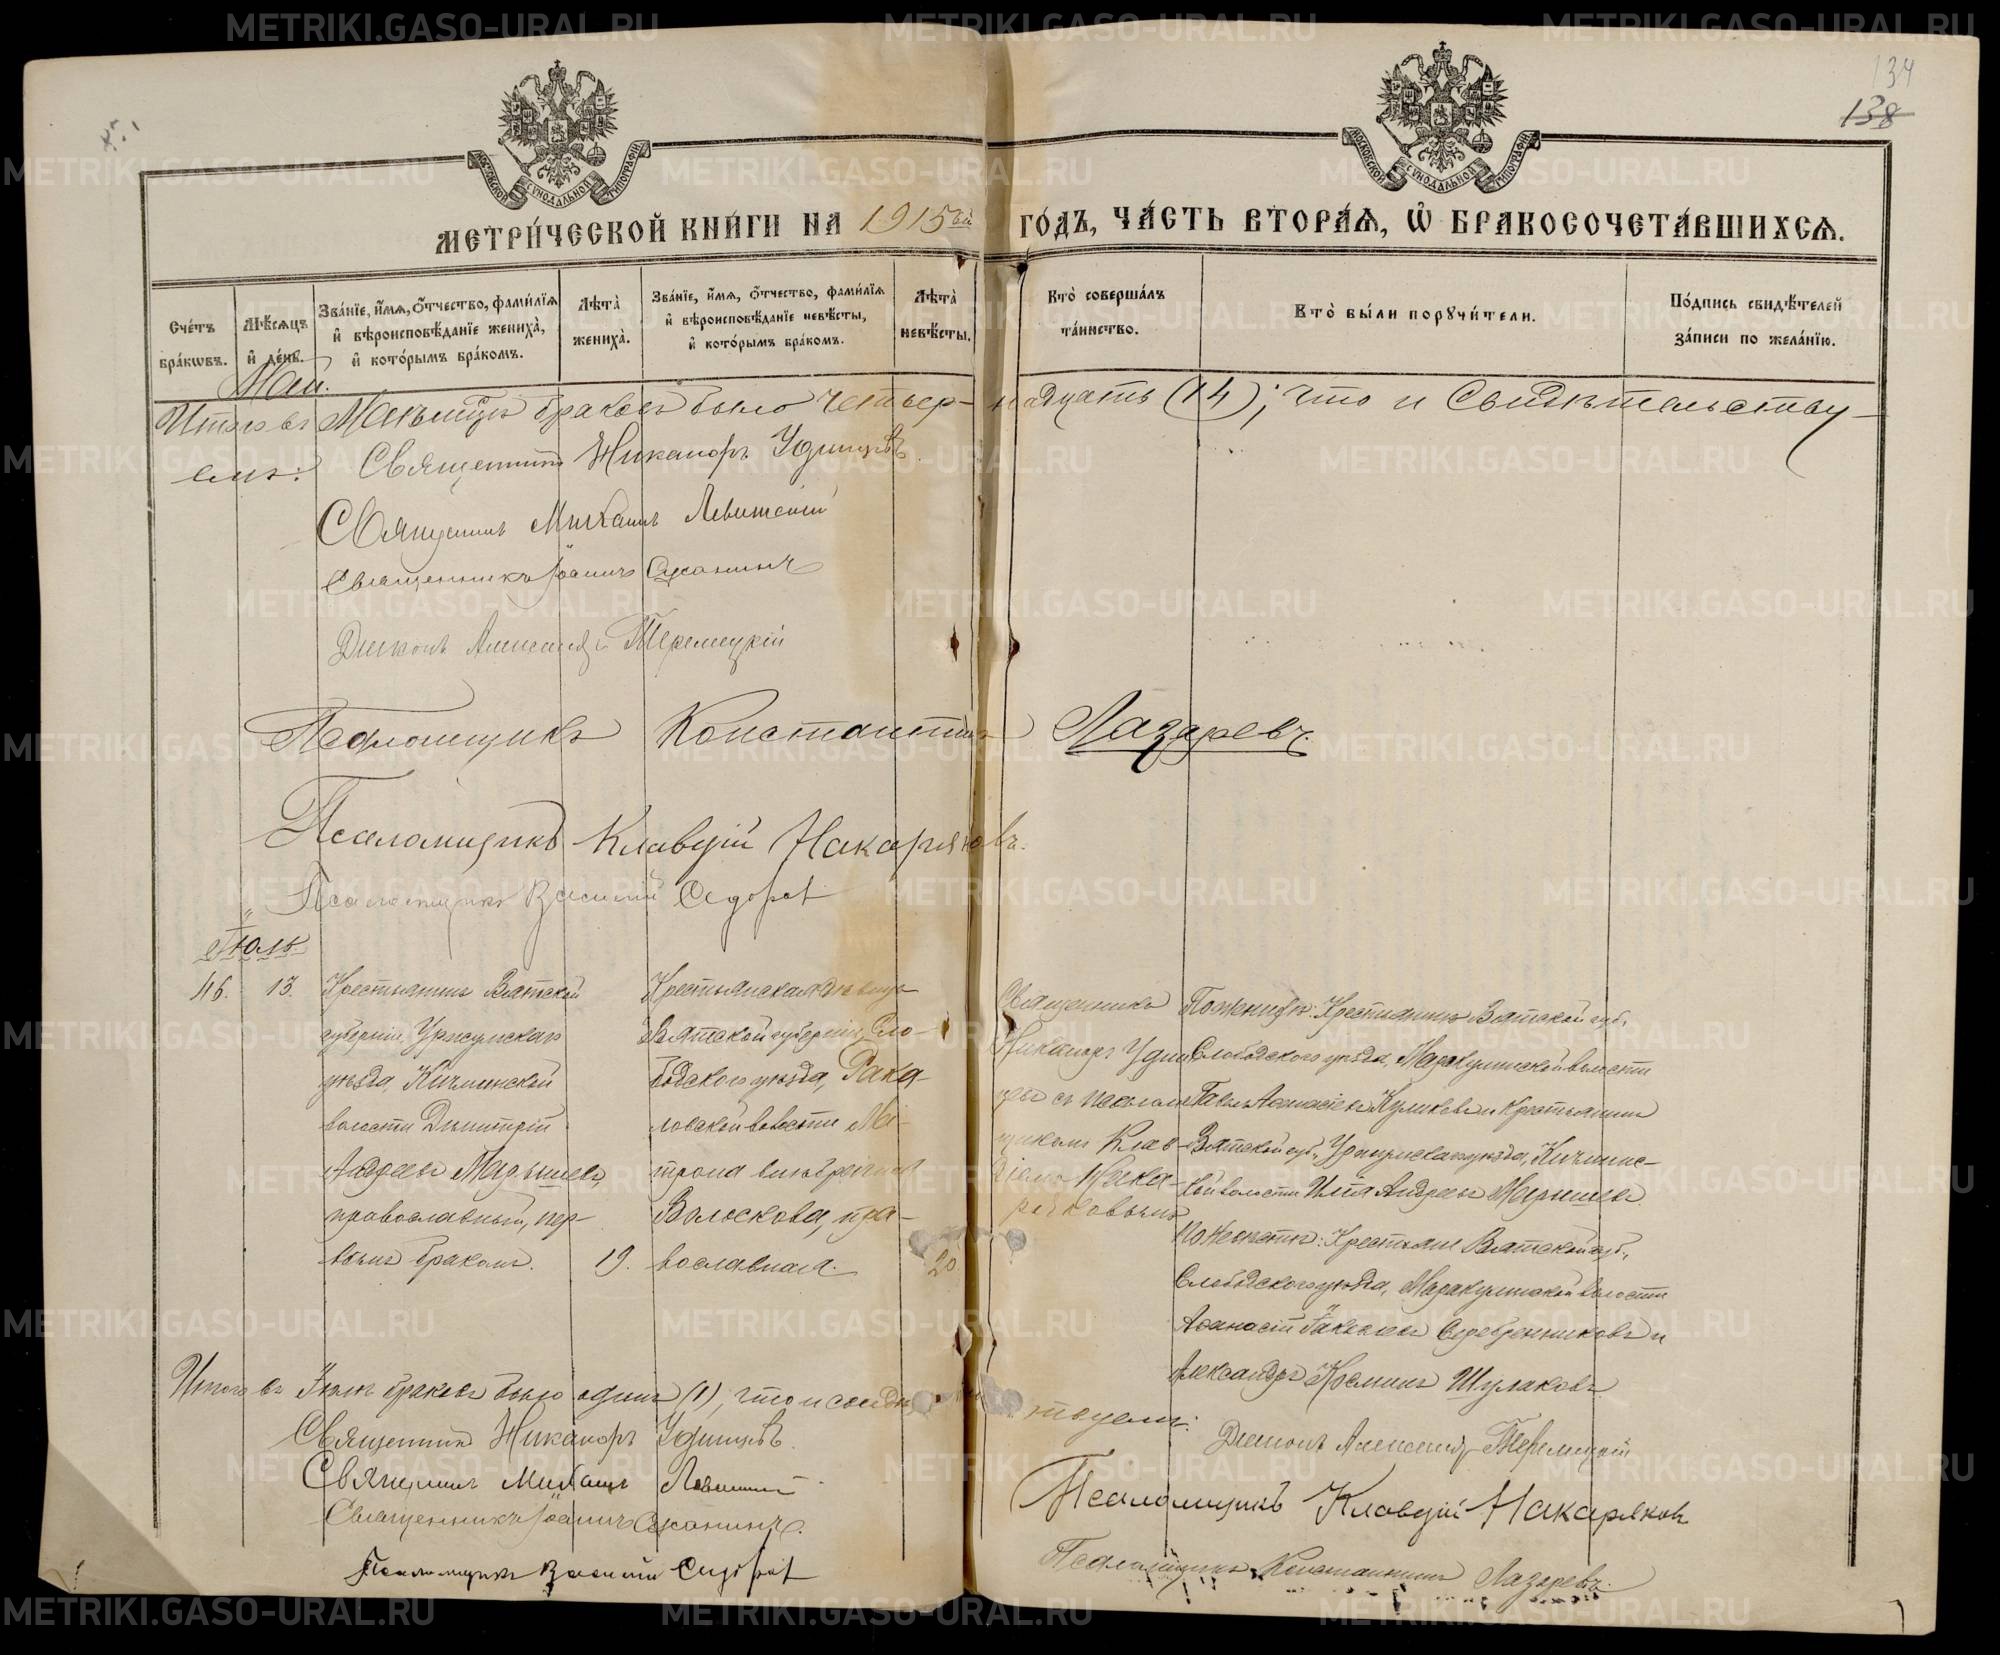 134
138
МЕТРИ́ЧЕСКОЙ КНИ́ГИ НА 1915ый ГО́ДЪ, ЧА́СТЬ ВТОРА́Я, Ѡ БРАКОСОЧЕТА́ВШИХСЯ.
Сче́тъ бра́кѡвъ.
Мѣ́сяцъ и де́нь.
Зва́нїе, и́мя, о́тчество, фами́лїя и вѣроисповѣ́данїе жениха̀, и кото́рымъ бра́комъ.
Лѣта̀ жениха̀.
Зва́нїе, и́мя, о́тчество, фами́лїя и вѣроисповѣ́данїе невѣ́сты, и кото́рымъ бра́комъ.
Лѣта̀ невѣ́сты.
Кто̀ соверша́лъ та́инство.
Кто̀ бы́ли порꙋчи́тели.
По́дпись свидѣ́телей за́писи по жела́нїю.
Май.
Итого въ Маѣ мѣсяцѣ браковъ было четыр- надцать (14); что и Свидѣтельству-
емъ: Священникъ Никаноръ Удинцевъ
Священникъ Михаилъ Левитскій
Священникъ Іоаннъ Сусанинъ
Діаконъ Александръ Теремецкій
Псаломщикъ Константинъ Лазаревъ.
Псаломщикъ Клавдій Накаряковъ.
Псаломщикъ Василій Седоровъ
Іюль.
46. 13. Крестьянинъ Вятской
губерніи, Уржумскаго
уѣзда, Кичминской
волости Димитрій
Андреевъ Марышевъ,
православный, пер-
вымъ бракомъ. 19.
Крестьянская дѣвица
Вятской губерніи, Сло-
бодского уѣзда, Рака-
ловской волости Ма-
трона
Волоскова, пра-
вославная. 20
Священникъ
Никаноръ Удин-
цевъ съ псалом-
щикомъ Клав-
діемъ Нака-
ряковымъ
По женихѣ: Крестьянинъ Вятской губ.,
Слободского уѣзда, Маракулинской волости
Павелъ Аѳанасіевъ Куликовъ и Крестьянинъ
Вятской губ., Уржумскаго уѣзда, Кичминс-
кой волости Илія Андреевъ Марышевъ.
По невѣстѣ: Крестьяне Вятской губ.,
Слободского уѣзда, Маракулинской волости
Аѳанасій Іаковлевъ Серебренниковъ и
Александръ Косминъ Шулаковъ
Итого въ Іюлѣ браковъ было одинъ (1), что и свидѣ- тельствуемъ:
Священникъ Никаноръ Удинцевъ.
Священникъ Михаилъ Левитскій
Священникъ Іоаннъ Сусанинъ.
Псаломщикъ Василій Седоровъ
Діаконъ Александръ Теремецкій
Псаломщикъ Клавдій Накаряковъ
Псаломщикъ Константинъ Лазаревъ.